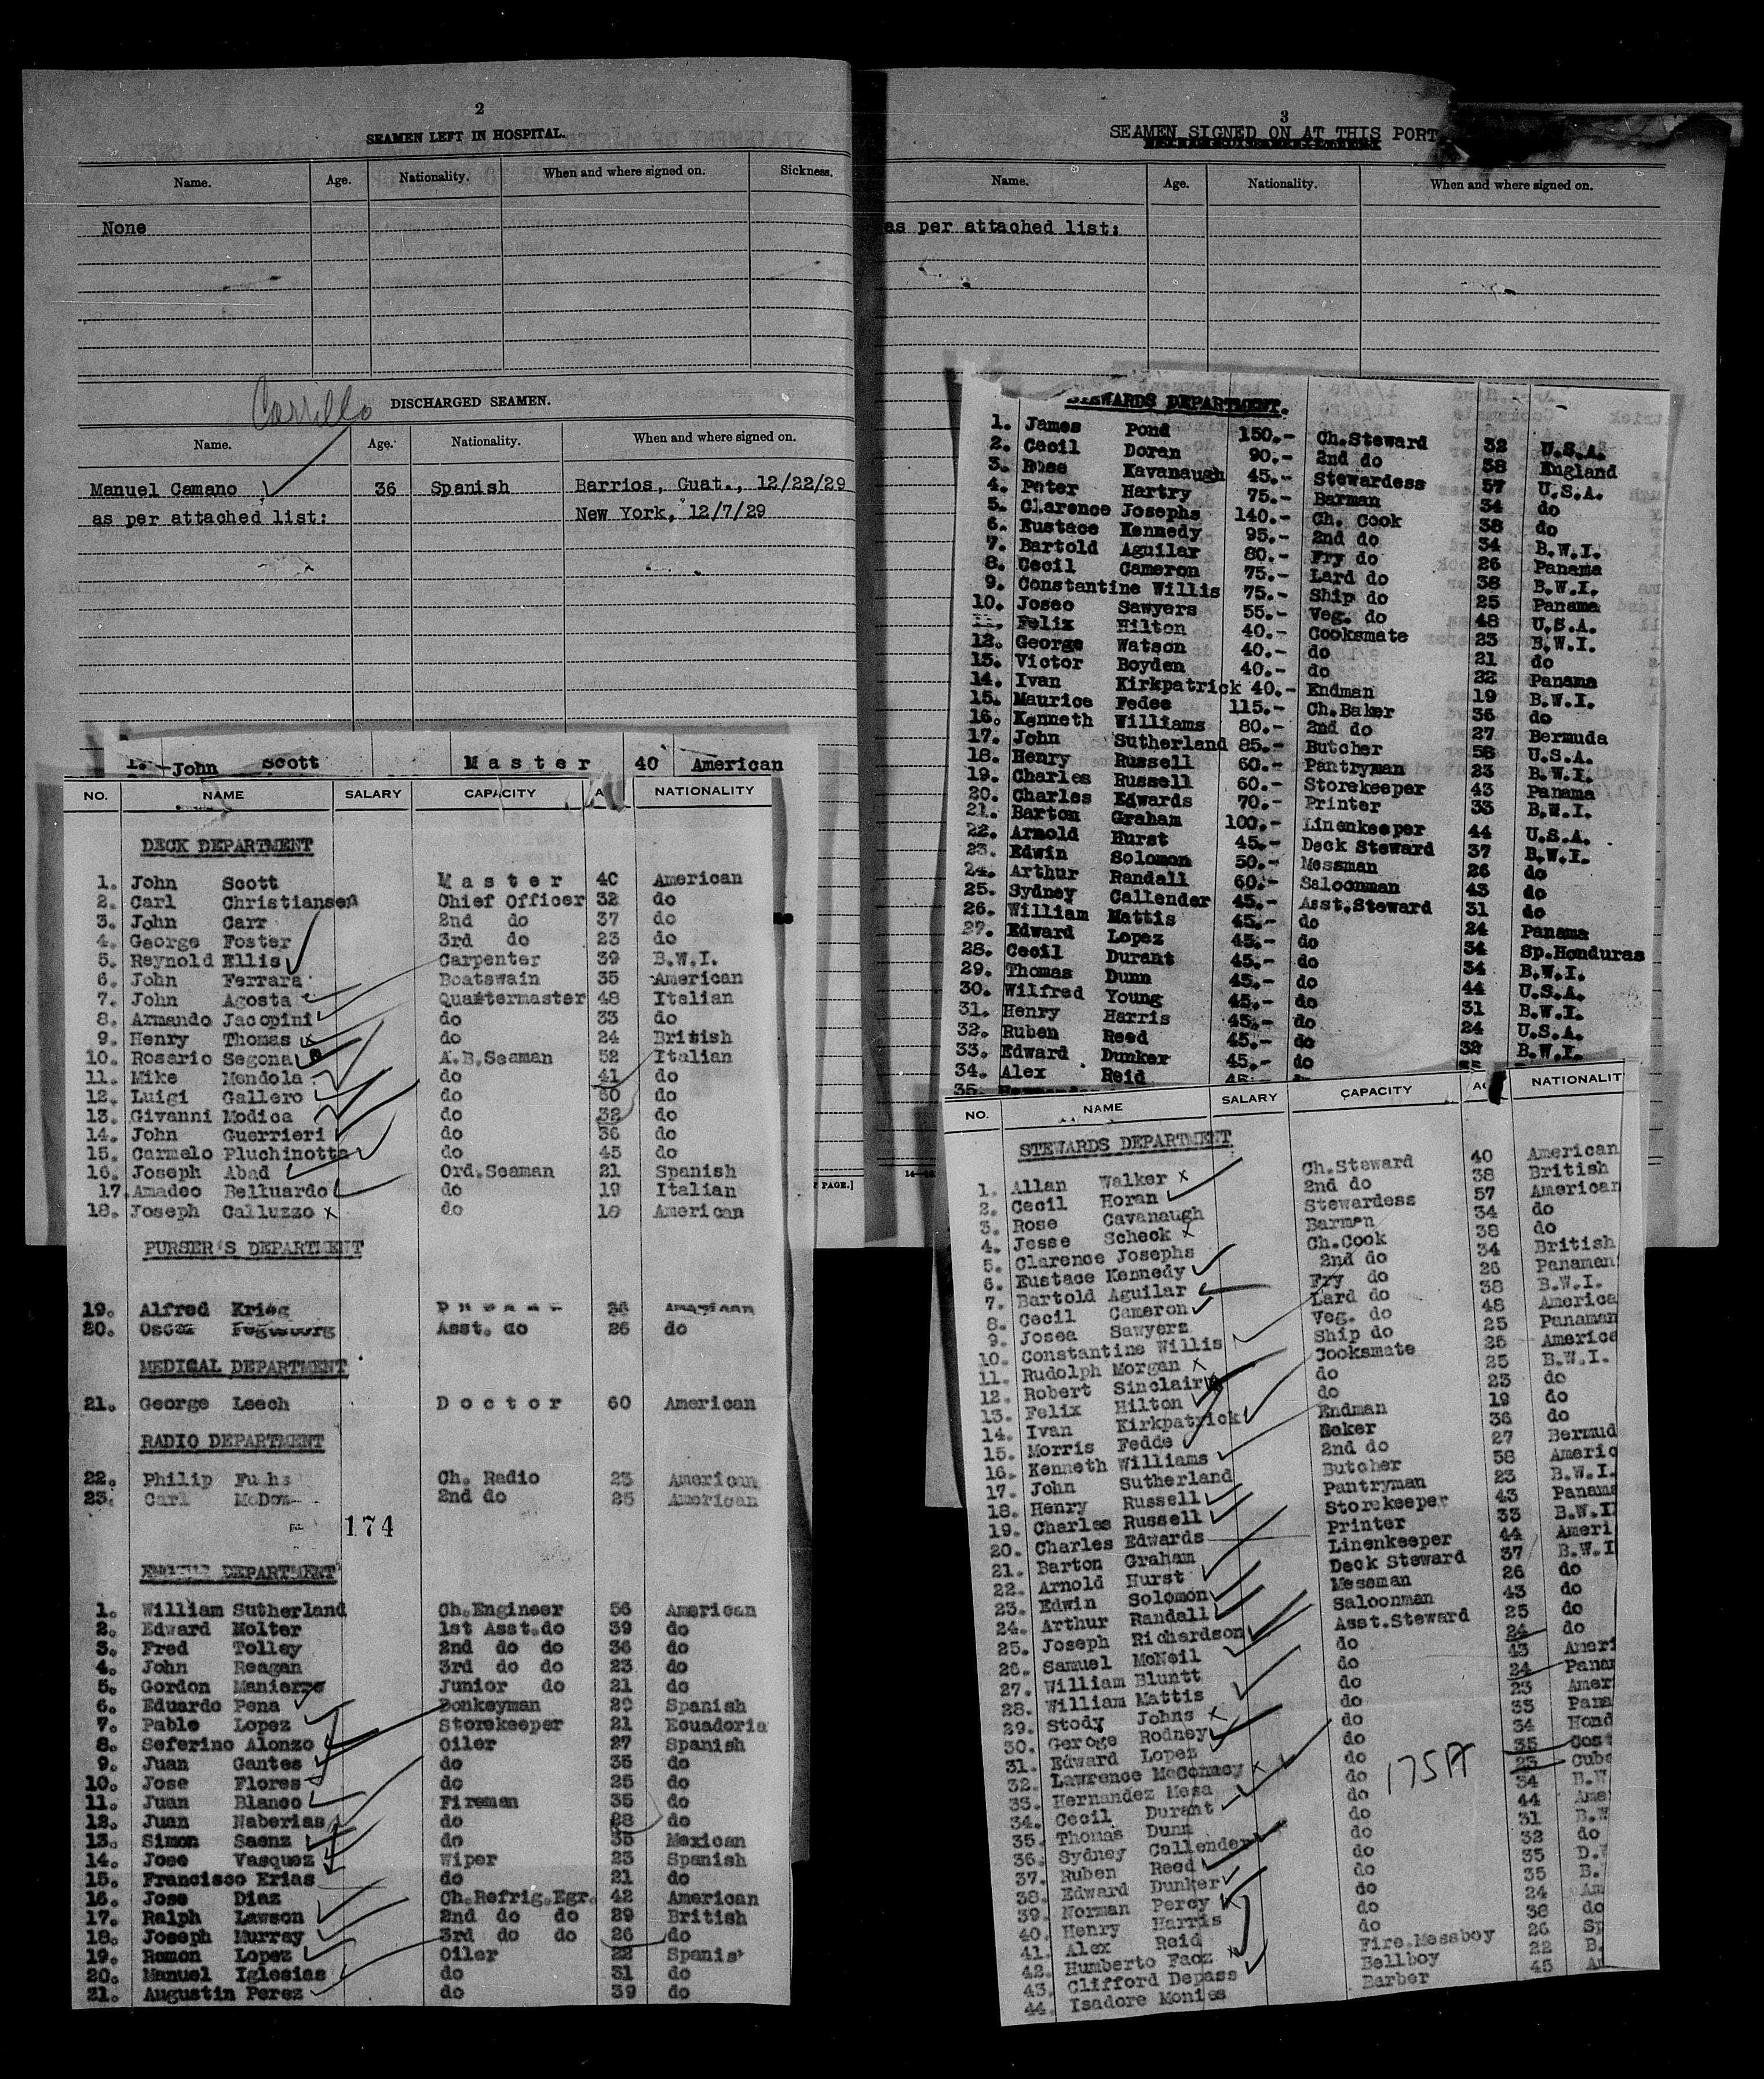 2
SEAMEN LEFT IN HOSPITAL.
Name. Age. Nationality. When and where signed on. Sickness.
None
Carrillo
DISCHARGED SEAMEN.
Name. Age. Nationality. When and where signed on.
Manuel Camano 36 Spanish Barrios, Guat., 12/22/29
as per attached list: New York, 12/7/29
1. John Scott Master 40 American
NO. NAME SALARY CAPACITY NATIONALITY
DECK DEPARTMENT
1. John Scott Master 40 American
2. Carl Christiansen Chief Officer 32 do
3. John Carr 2nd do 37 do
4. George Foster 3rd do 23 do
5. Reynold Ellis Carpenter 39 B.W.I.
6. John Ferrara Boatswain 35 American
7. John Agosta Quartermaster 48 Italian
8. Armando Jacopini do 33 do
9. Henry Thomas x do 24 British
10. Rosario Segona A.B.Seaman 52 Italian
11. Mike Mendola do 41 do
12. Luigi Gallero do 50 do
13. Givanni Modica do 32 do
14. John Guerrieri do 36 do
15. Carmelo Pluchinotta do 45 do
16. Joseph Abad Ord.Seaman 21 Spanish
17. Amadeo Belluardo do 19 Italian
18. Joseph Galluzzo x do 18 American
PURSER'S DEPARTMENT
19. Alfred Krieg Purser 36 American
20. Oscar Asst. do 26 do
MEDICAL DEPARTMENT
21. George Leech Doctor 60 American
RADIO DEPARTMENT
22. Philip Fuchs Ch. Radio 23 American
23. Carl 2nd do 25 American
174
ENGINE DEPARTMENT
1. William Sutherland Ch.Engineer 56 American
2. Edward Molter 1st Asst.do 39 do
3. Fred Tolley 2nd do do 36 do
4. John Reagan 3rd do do 23 do
5. Gordon Manierre Junior do 21 do
6. Eduardo Pena Donkeyman 29 Spanish
7. Pablo Lopez Storekeeper 21 Ecuadoria
8. Seferino Alonzo Oiler 27 Spanish
9. Juan Gantes do 35 do
10. Jose Flores do 25 do
11. Juan Blanco Fireman 35 do
12. Juan Naberias do 28 do
13. Simon Saenz do 35 Mexican
14. Jose Vasquez Wiper 23 Spanish
15. Francisco Erias do 21 do
16. Jose Diaz Ch.Refrig.Egr. 42 American
17. Ralph Lawson 2nd do do 29 British
18. Joseph Murray 3rd do do 26 do
19. Ramon Lopez Oiler 22 Spanis
20. Manuel Iglesias do 31 do
21. Augustin Perez do 39 do
PAGE.]
3
SEAMEN SIGNED ON AT THIS PORT
Name. Age. Nationality. When and where signed on.
as per attached list:
STEWARDS DEPARTMENT.
1. James Pond 150.- Ch.Steward 32 U.S.A.
2. Cecil Doran 90.- 2nd do 38 England
3. Rose Kavanaugh 45.- Stewardess 57 U.S.A.
4. Peter Hartry 75.- Barman 34 do
5. Clarence Josephs 140.- Ch. Cook 38 do
6. Eustace Kennedy 95.- 2nd do 34 B.W.I.
7. Bartold Aguilar 80.- Fry do 26 Panama
8. Cecil Cameron 75.- Lard do 38 B.W.I.
9. Constantine Willis 75.- Ship do 25 Panama
10. Joseo Sawyers 55.- Veg. do 48 U.S.A.
11. Felix Hilton 40.- Cooksmate 23 B.W.I.
12. George Watson 40.- do 21 do
13. Victor Boyden 40.- do 22 Panama
14. Ivan Kirkpatrick 40.- Endman 19 B.W.I.
15. Maurice Fedee 115.- Ch.Baker 36 do
16. Kenneth Williams 80.- 2nd do 27 Bermuda
17. John Sutherland 85.- Butcher 58 U.S.A.
18. Henry Russell 60.- Pantryman 23 B.W.I.
19. Charles Russell 60.- Storekeeper 43 Panama
20. Charles Edwards 70.- Printer 33 B.W.I.
21. Barton Graham 100.- Linenkeeper 44 U.S.A.
22. Arnold Hurst 45.- Deck Steward 37 B.W.I.
23. Edwin Solomon 50.- Messman 26 do
24. Arthur Randall 60.- Saloonman 43 do
25. Sydney Callender 45.- Asst.Steward 31 do
26. William Mattis 45.- do 24 Panama
27. Edward Lopez 45.- do 34 Sp.Honduras
28. Cecil Durant 45.- do 34 B.W.I.
29. Thomas Dunn 45.- do 44 U.S.A.
30. Wilfred Young 45.- do 31 B.W.I.
31. Henry Harris 45.- do 24 U.S.A.
32. Ruben Reed 45.- do 32 B.W.I.
33. Edward Dunker 45.- do
34. Alex Reid 45.-
35.
NO. NAME SALARY CAPACITY NATIONALIT
STEWARDS DEPARTMENT
1. Allan Walker x Ch.Steward 40 American
2. Cecil Horan 2nd do 38 British
3. Rose Cavanaugh Stewardess 57 American
4. Jesse Scheck x Barman 34 do
5. Clarence Josephs Ch.Cook 38 do
6. Eustace Kennedy 2nd do 34 British
7. Bartold Aguilar Fry do 26 Panaman
8. Cecil Cameron Lard do 38 B.W.I.
9. Josea Sawyers Veg. do 48 America
10. Constantine Willis Ship do 25 Panaman
11. Rudolph Morgan x Cooksmate 25 America
12. Robert Sinclair do 25 B.W.I.
13. Felix Hilton do 23 do
14. Ivan Kirkpatrick Endman 19 do
15. Morris Fedde Baker 36 do
16. Kenneth Williams 2nd do 27 Bermud
17. John Sutherland Butcher 58 Americ
18. Henry Russell Pantryman 23 B.W.I.
19. Charles Russell Storekeeper 43 Panama
20. Charles Edwards Printer 33 B.W.I
21. Barton Graham Linenkeeper 44 Ameri
22. Arnold Hurst Deck Steward 37 B.W.I
23. Edwin Solomon Messman 26 do
24. Arthur Randall Saloonman 43 do
25. Joseph Richardson Asst.Steward 25 do
26. Samuel McNeil do 24 do
27. William Bluntt do 43 Ameri
28. William Mattis do 24 Panam
29. Stody Johns x do 23 Amer
30. Geroge Rodney do 33 Pana
31. Edward Lopez do 34 Hond
32. Lawrence McConney x do 35 Cost
33. Hernandez Mesa do 23 Cuba
34. Cecil Durant do 34 B.W
35. Thomas Dunn do 44 Ame
36. Sydney Callender do 31 B.W
37. Ruben Reed do 32 do
38. Edward Dunker do 35
39. Norman Percy do 35 B.
40. Henry Harris do 24 Am
41. Alex Reid do 38 do
42. Humberto Faoz x Fire.Messboy 26 Sp
43. Clifford Depass Bellboy 22 B.
44. Isadore Monies Barber 45
175A